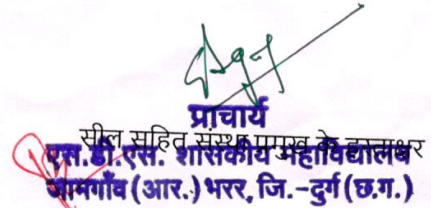 प्राचार्य
सील सहित संस्था प्रमुख के हस्ताक्षर
एस.डी.एस. शासकीय महाविद्यालय
जामगाँव (आर.) भरर, जि.-दुर्ग (छ.ग.)